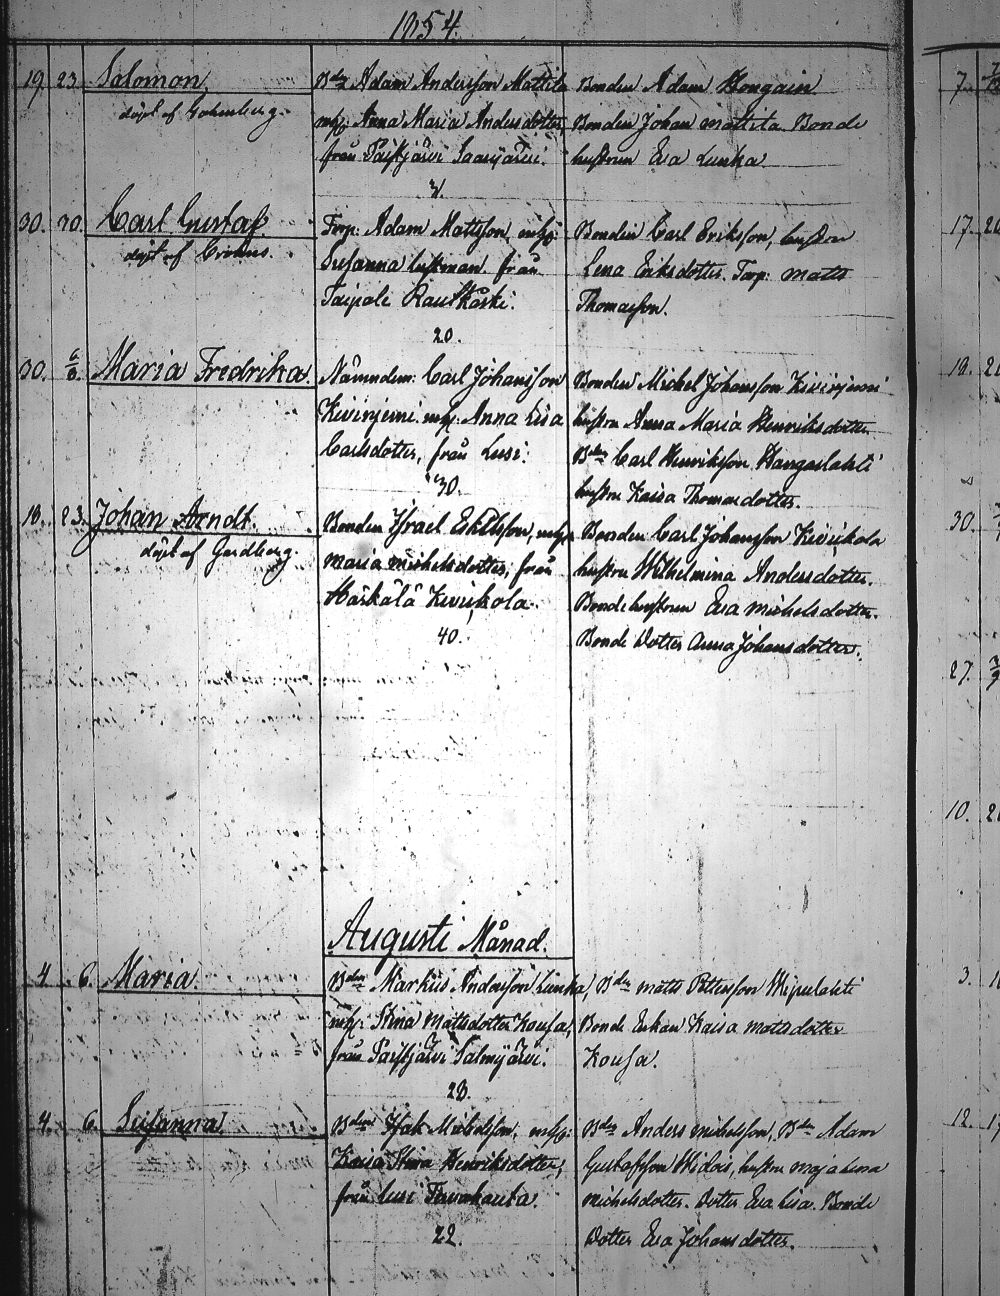 1854.
19. 23. Salomon,
döpt af Gottenberg.
Bden Adam Andersson Mattila
mh: Anna Maria Andersdotter,
från Paistjärvi Saarijärvi.
31.
Bonden Adam Hongain
Bonden Johan Mattila. Bonde
hustrun Eva Lunka
30. 30. Carl Gustaf
döpt af Crohns.
Torp. Adam Mattsson, mh:
Susanna Lustman. från
Taipale Rautkoski.
20.
Bonden Carl Eriksson, hustru
Lena Eriksdotter. Torp. Matts
Thomasson.
30. 6/8. Maria Fredrika.
Nämndem: Carl Johansson
Kivinjemi. mh. Anna Lisa
Carlsdotter, från Lusi.
30.
Bonden Michel Johansson Kivinjemi
hustru Anna Maria Henriksdotter
Bden Carl Henriksson Hangaslahti
hustru Kaisa Thomasdotter.
18. 23. Johan Arndt.
döpt af Gerdberg.
Bonden Israel Eskelsson, mh.
Maria Michelsdotter, från
Härkälä Kivikola.
40.
Bonden Carl Johansson Kivikola
hustru Wilhelmina Andersdotter.
Bonde hustrun Eva Michelsdotter.
Bonde Dotter Anna Johansdotter.
Augusti Månad.
4. 6. Maria.
Bden Markus Andersson Lunka,
mh: Stina Mattsdotter Kousa,
från Paistjärvi Salmijärvi.
28.
Bden Matts Pettersson Wipulahti
Bonde Enkan Kaisa Mattsdotter
Kousa.
4. 6. Susanna.
Bden Isak Michelsson, mh:
Kaisa Stina Henriksdotter,
från Lusi Tawohauta.
22.
Bden Anders Michelsson, Bden Adam
Gustafsson Widois, hustru Maja Lena
Michelsdotter. Dotter Eva Lisa. Bonde
Dotter Eva Johansdotter.
7.
17.
18.
30.
27.
10.
3.
12.